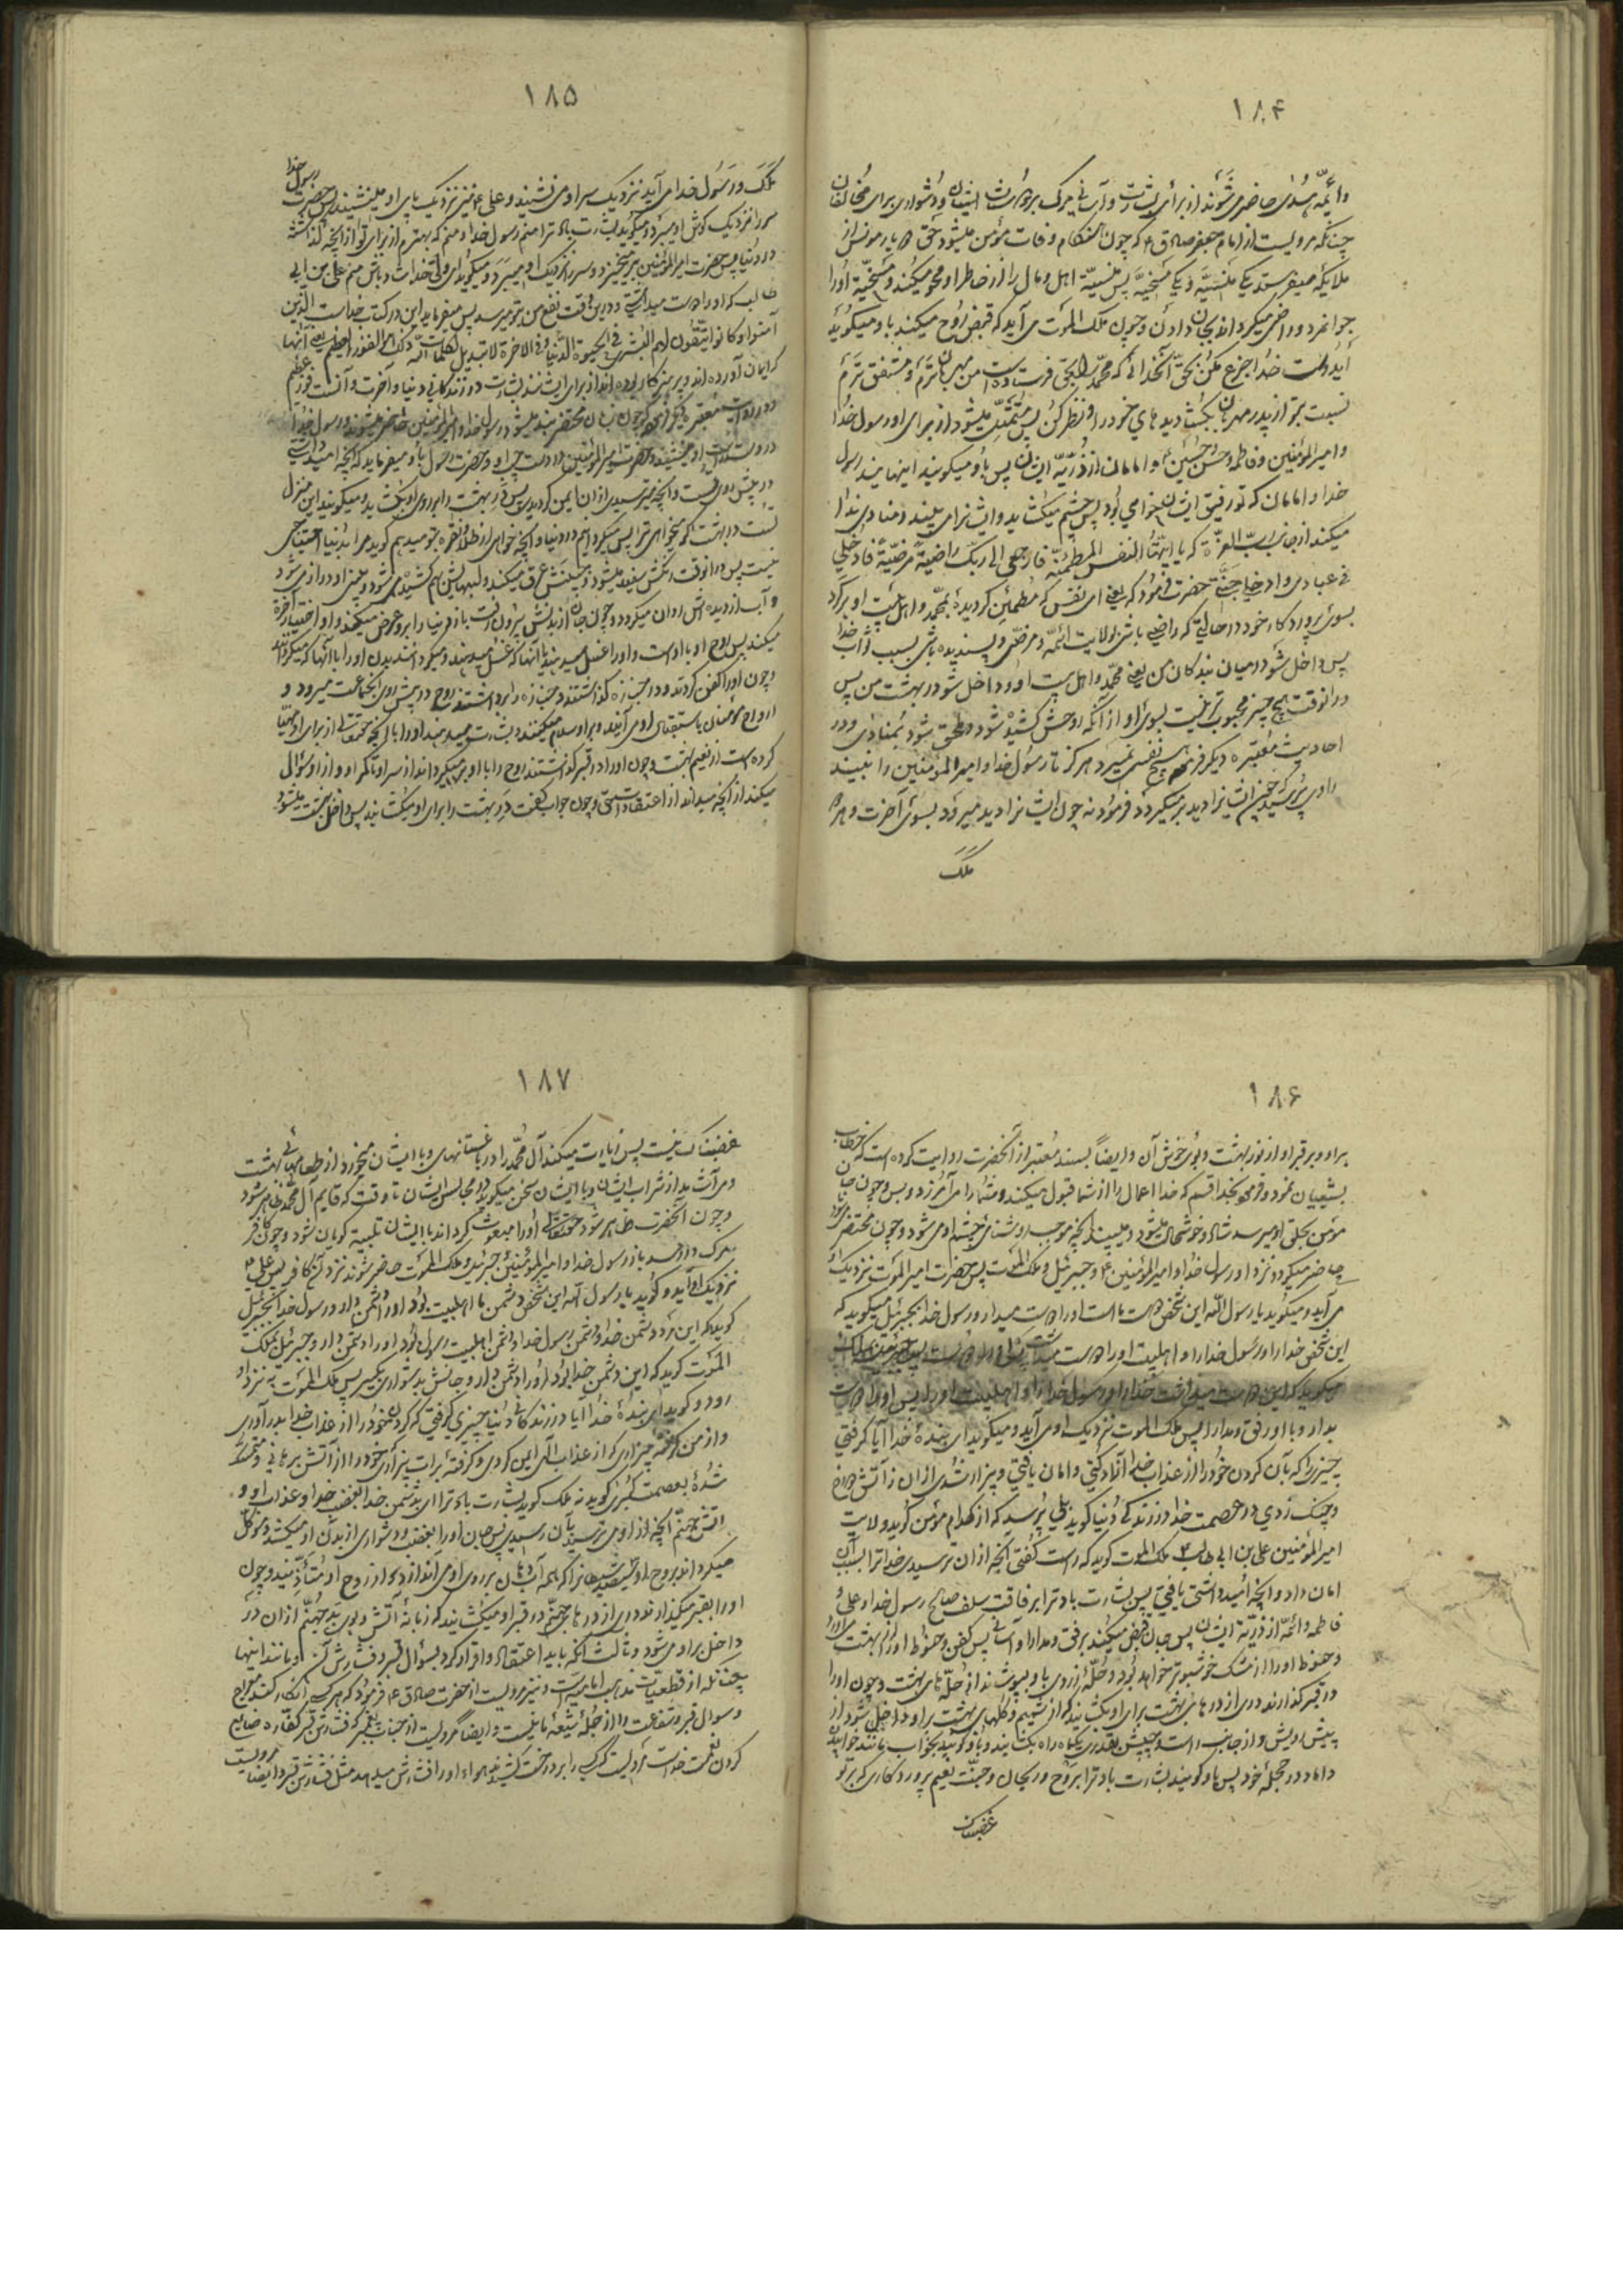 ۱۸۴
وائمّه هدی حاضر می‌شوند از برای بشارت و آسانی مرگ بر دوستان ایشان و دشواری برای مخالفان
چنانکه مرویست از امام جعفر صادق ع که چون هنگام وفات مؤمن میشود حق
ملایکه میفرستد یکی منسیّه و یکی مسخیّه پس منسیّه اهل و مال را از خاطر او محو میکند و مسخیّه او را
جوانمرد و راضی میکرداند بجان دادن و چون ملک الموت می آید که قبض روح میکند باو میکوید
ایدوست خدا جزع مکن بحق آنخدائی که محمد را بحق فرستاده است من مهربان ترم و مشفق ترم
نسبت بتو از پدر مهربان بکشا دیدهای خود را و نظر کن پس متمثّل میشود از برای او رسول خدا
و امیرالمؤمنین و فاطمه و حسن و حسین و امامان از ذرّیّه ایشان پس باو میکویند اینهایند رسول
خدا و امامان که تو رفیق ایشان خواهی بود پس چشم میکشاید و ایشانرا می بیند و منادی ندا
میکند از جانب ربّ العزّة که یا ایّتها النفس المطمئنّة فارجعی الی ربّک راضیة مرضیّة فادخلی
فی عبادی وادخلی جنّتی حضرت فرمود که یعنی ای نفس که مطمئن کردیدهٔ بمحمد و اهل بیت او برکرد
بسوی پروردکار خود در حالتی که راضی باشی بولایت ائمّه و مرضی و پسندیده باشی بسبب ثواب خدا
پس داخل شو در میان بندکان من یعنی محمد و اهل بیت او و داخل شو در بهشت من پس
در آنوقت هیچ چیز محبوب تر نیست بسوی او از آنکه روحش کشیده شود و ملحق شود بمنادی و در
احادیث معتبره دیکر فرمود هیچ نفسی نمیرد هرکز تا رسول خدا و امیرالمؤمنین را نبیند
راوی پرسید چون ایشانرا دید برمیکردد فرمود نه چون ایشانرا دید میرود بسوی آخرت و هر
ملک
۱۸۵
ملک و رسول خدا می آید نزدیک سر او می نشیند و علی ع نیز نزدیک پای او می نشیند پس حضرت رسول خدا
سر را نزدیک کوش او میبرد و میکوید بشارت باد ترا منم رسول خدا و منم که بهترم از برای تو از آنچه کذاشته
در دنیا پس حضرت امیرالمؤمنین برمیخیزد و سر نزدیک او میبرد و میکوید ای ولی خدا شاد باش منم علی بن ابی
طالب که او را دوست میداشتی و درین وقت نفع من بتو میرسد پس میفرماید این در کتاب خداست الذین
آمنوا و کانوا یتّقون لهم البشری فی الحیوة الدّنیا و فی الاخرة لا تبدیل لکلمات اللّه ذلک هو الفوز العظیم یعنی آنها
که ایمان آورده اند و پرهیزکار بوده اند از برای ایشانست بشارت در زندکانی دنیا و آخرت و آنست فوز عظیم
و در روایت معتبره دیکر فرمود که چون زبان محتضر بند میشود رسول خدا و امیرالمؤمنین حاضر میشوند و رسول خدا
در دست راست او مینشیند و حضرت امیرالمؤمنین در دست چپ او و حضرت رسول باو میفرماید که آنچه امید داشتی
در پیش روی تست و آنچه میترسیدی از آن ایمن کردیدی پس دری بهشت را بر روی او بکشاید و میکویند این منزل
تست در بهشت اکر میخواهی ترا پس میکردانم در دنیا و آنچه خواهی از طلا و نقره بتو میدهم کوید مرا بدنیا احتیاجی
نیست پس در آنوقت رنکش سفید میشود و جبینش عرق میکند و لبهایش هم کشیده میشود و بینی او دراز میشود
و آب از دیده اش روان میکردد و چون جان از بدنش بیرون رفت باز دنیا را بر او عرض میکنند و او اختیار آخرت
میکند پس روح او با اوست و او را غسل میدهند با آنها که غسل میدهند و میکردانند بدن او را با آنها که میکردانند
و چون او را کفن کردند و در جنازه کذاشتند و جنازه را برداشتند روح در پیش روی انجماعت میرود و
ارواح مؤمنان باستقبال او می آیند و بر او سلام میکنند و بشارت میدهند او را با آنچه حقتعالی از برای او مهیّا
کرده است از نعیم بهشت و چون او را در قبر کذاشتند روح را با او برمیکردانند از سر او تا کمر او و از او سؤال
میکنند از آنچه میداند از اعتقادات حق و چون جواب کفت در بهشت را برای او میکشایند پس داخل میشود
۱۸۶
بر او در قبر او از نور بهشت و بوی خوش آن و ایضاً بسند معتبر از آنحضرت روایت کرده است که خطاب
بشیعیان نمود و فرمود بخدا قسم که خدا اعمال را از شما قبول میکند و شما را می آمرزد و بس و چون جان
مؤمن بحلق او میرسد شاد و خوشحال میشود و میبیند آنچه موجب روشنی چشم او می شود و چون محتضر شود
حاضر میکردد نزد او رسول خدا و امیرالمؤمنین ع و جبرئیل و ملک الموت پس حضرت امیر المؤمنین نزدیک
می آید و میکوید یا رسول اللّه این شخص دوست ماست او را دوست میدار و رسول خدا بجبرئیل میکوید که
این شخص خدا را و رسول خدا را و اهلبیت او را دوست میداشت پس او را دوست
میکوید که این دوست میداشت خدا را و رسول خدا را و اهلبیت او را پس او را دوست
بدار و با او رفق و مدارا پس ملک الموت نزدیک او می آید و میکوید ای بندهٔ خدا آیا کرفتی
چیزی را که بآن کردن خود را از عذاب خدا آزاد کنی و امان یافتی و بیزار شدی از آن ز آتش دوزخ
و چنک زدی در عصمت خدا در زندکی دنیا کوید بلی پرسد که از کدام مؤمن کوید ولایت
امیرالمؤمنین علی بن ابی طالب ع ملک الموت کوید که راست کفتی آنچه از آن ترسیدی خدا ترا بسبب آن
امان داد و آنچه امید داشتی یافتی پس بشارت باد ترا برفاقت سلف صالح رسول خدا و علی و
فاطمه و ائمّه از ذرّیّه ایشان پس جان قبض میکند برفق و مدارا و آسانی پس کفن و حنوط او را از بهشت می آورد
و حنوط او را از مشک خوشبوتر خواهد بود و حلّهٔ زردی باو پوشند از حلّه های بهشت و چون او را
در قبر کذارند دری از درهای بهشت برای او بکشایند که از نسیم و کلهای بهشت بر او داخل شود از
پیش رویش و از جانب راست و چپش بقدر یکماه راه بکشایند و باو کویند بخواب مانند خوابیدن
داماد در حجلهٔ خود پس باو کویند بشارت باد ترا بروح و ریحان و جنّت نعیم پروردکاری که بر تو
غضبناک
۱۸۷
غضبناک نیست پس زیارت میکند آل محمد را در باغستانهای و با ایشان میخورد از طعامهای بهشت
و می آشامد از شراب ایشان و با ایشان سخن میکوید در مجالس ایشان تا وقت که قایم آل محمد ظاهر شود
و چون آنحضرت ظاهر شود حقتعالی او را مبعوث کرداند با ایشان تلبیه کویان شود و چون کافر
مرک دررسد باز رسول خدا و امیرالمؤمنین و جبرئیل و ملک الموت حاضر شوند نزد آن کافر پس علی ع
نزدیک او آید و کوید یا رسول اللّه این شخص دشمن ما اهلبیت بود او را دشمن دار و رسول خدا بجبرئیل
کوید که این مرد دشمن خدا و دشمن رسول خدا و دشمن اهلبیت رسول بود او را دشمن دار و جبرئیل بملک
الموت کوید که این دشمن خدا بود او را دشمن دار و جانش بدشواری بکیر پس ملک الموت به نزد او
رود و کوید ای بندهٔ خدا آیا در زندکانی دنیا چیزی کرفتی که کردن خود را از عذاب خدا بدر آوری
و از من کرفتهٔ چیزی که از عذاب الهی ایمن کردی و کرفتهٔ برات بیزاری خود را از آتش برهانی و متمسک
شدهٔ بعصمت کبری کوید نه ملک کوید بشارت باد ترا ای دشمن خدا بغضب خدا و عذاب او و
آتش جهنّم آنچه از او می ترسیدی بآن رسیدی پس جان او را بعنف و دشواری از بدن او میکشد و موکل
میکرداند بروح او سیصد شیطانرا که همه آب دهان بر روی او می اندازند و از روح او متأذّی میشوند و چون
او را بقبر میکذارند دری از درهای جهنّم در قبر او میکشایند که زبانهٔ آتش و بوی بد جهنّم از آن در
داخل بر او می شود و ثالث آنکه باید اعتقاد و اقرار کرد بسؤال قبر و فشارش آن و مانند اینها
از قطعیّات مذهب امامیه است و نیز مرویست از حضرت صادق ع فرمود که هر کسی انکار کند معراج
و سؤال قبر و شفاعت را از جملهٔ شیعهٔ ما نیست و ایضاً مرویست از جناب پیغمبر که فشارش قبر کفّاره ضایع
کردن نعمت خداست مرویست اکر کسی را بر درخت کشند هوا او را فشارش میدهد مثل فشارش قبر و ایضاً مرویست